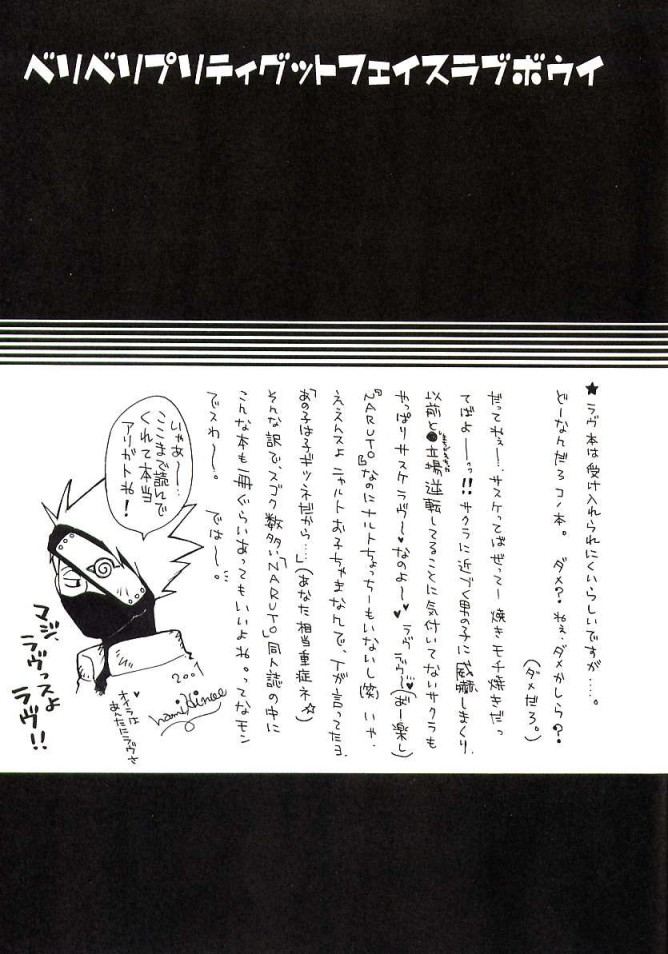 ベリベリプリティグットフェイスラブボウイ
★ラヴ本は受け入れられにくいらしいですが……。
どーなんだろコノ本。 ダメ？ねぇ、ダメかしら？
（ダメだろ。）
だってねぇー…サスケってばぜってー焼きモチ焼きだっ
てばよーっ!!サクラに近づく男の子に威嚇しまくり、
以前と立場逆転してることに気付いてないサクラも
やっぱりサスケラヴ〜♥なのよ〜♥ラヴラヴ〜♥（おー楽し）
『NARUTO』なのにナルトちょっちーもいないし（笑）いや、
ええんスよニャルトお子ちゃまなんで、Tが言ってたヨ、
「あの子は子ギツネだから…」（あなた相当重症ネ☆）
そんな訳で、スゴク数多い「NARUTO」同人誌の中に
こんな本も一冊ぐらいあってもいいよね。ってなモン
でスわ〜。 では〜。
いやぁー…
ここまで読んで
くれて本当
アリガトね！
マジ、
ラヴっスよ
ラヴ!!
2001
オイラは♥
あんたにラヴさ